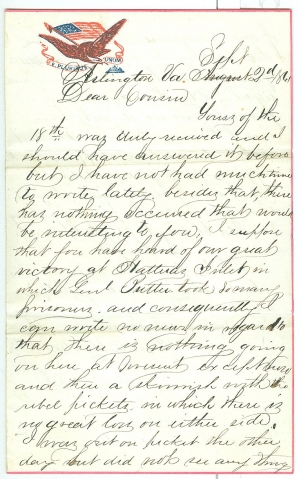 E PLURIBUS UNUM
Sept
Arlington Va. August 2nd/61
Dear Cousin
Yours of the
18th was duly received and I
should have answered it before
but I have not had much time
to write lately besides that, there
has nothing occured that would
be interesting to you, I suppose
that you have heard of our great
victory at Hatteras Inlet in
which Genl Butler took so many
prisoners. and consequently I
can write no news in regard to
that, there is nothing going
on here at present except now
and then a skirmish with the
rebel pickets in which there is
no great loss on either side.
I was out on picket the other
day but did not see any thing